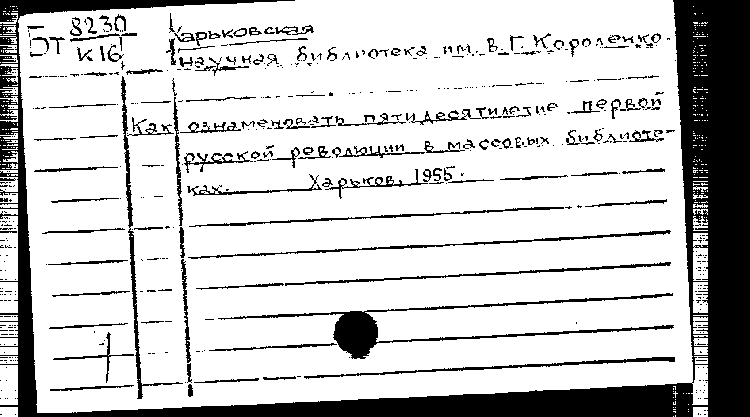 Бт 8230
К16
Харьковская
научная библиотека им. В.Г. Короленко.
Как ознаменовать пятидесятилетие первой
русской революции в массовых библиоте-
ках. Харьков, 1955.
1